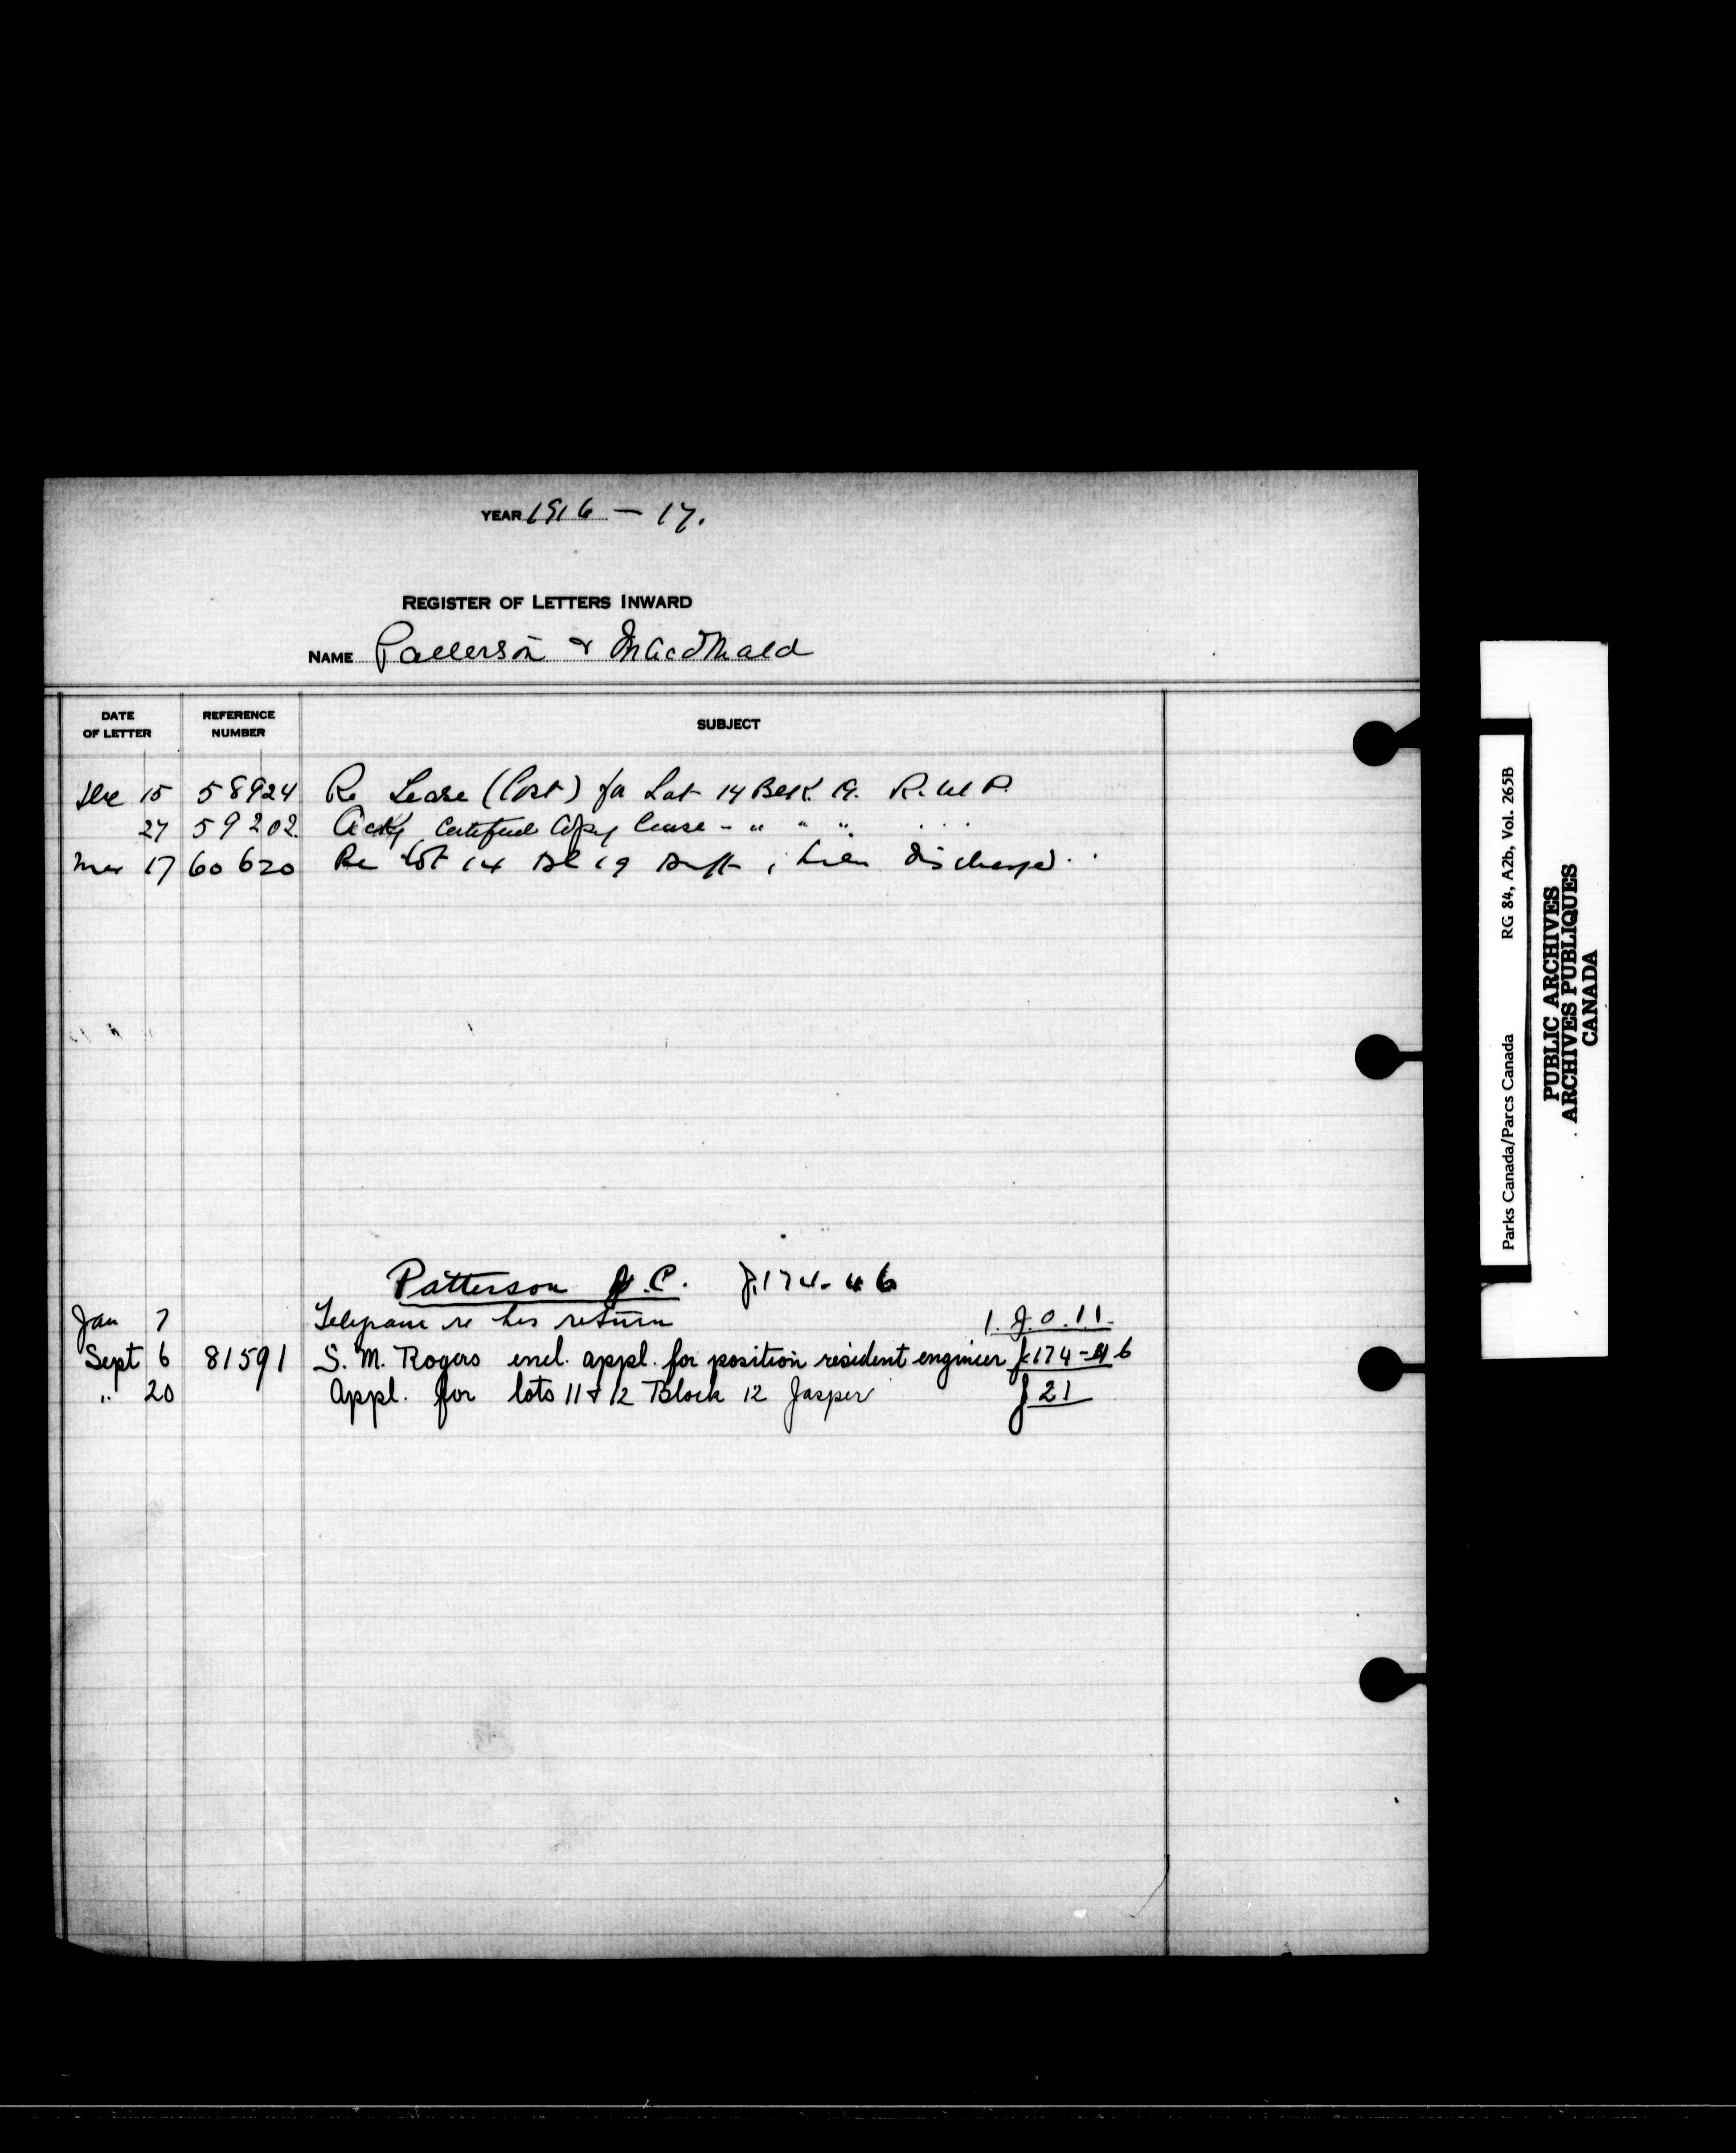 YEAR 1916 – 17.
REGISTER OF LETTERS INWARD
NAME Patterson & Macdonald
DATE OF LETTER REFERENCE NUMBER SUBJECT
Dec 15 58924 Re Lease (Cost) for Lot 14 Blk 19. R.M.P.
27 59202 Ackg Certified Copy lease - " " "
Mar 17 60620 Re Lot 14 Bl 19 Banff, lien discharged.
Patterson J.C. J.174-46
Jan 7 Telegram re his return 1. J.0.11.
Sept 6 81591 S. M. Rogers encl. appl. for position resident engineer J.174-46
" 20 Appl. for lots 11 & 12 Block 12 Jasper J 21
Parks Canada/Parcs Canada RG 84, A2b, Vol. 265B
PUBLIC ARCHIVES
ARCHIVES PUBLIQUES
CANADA